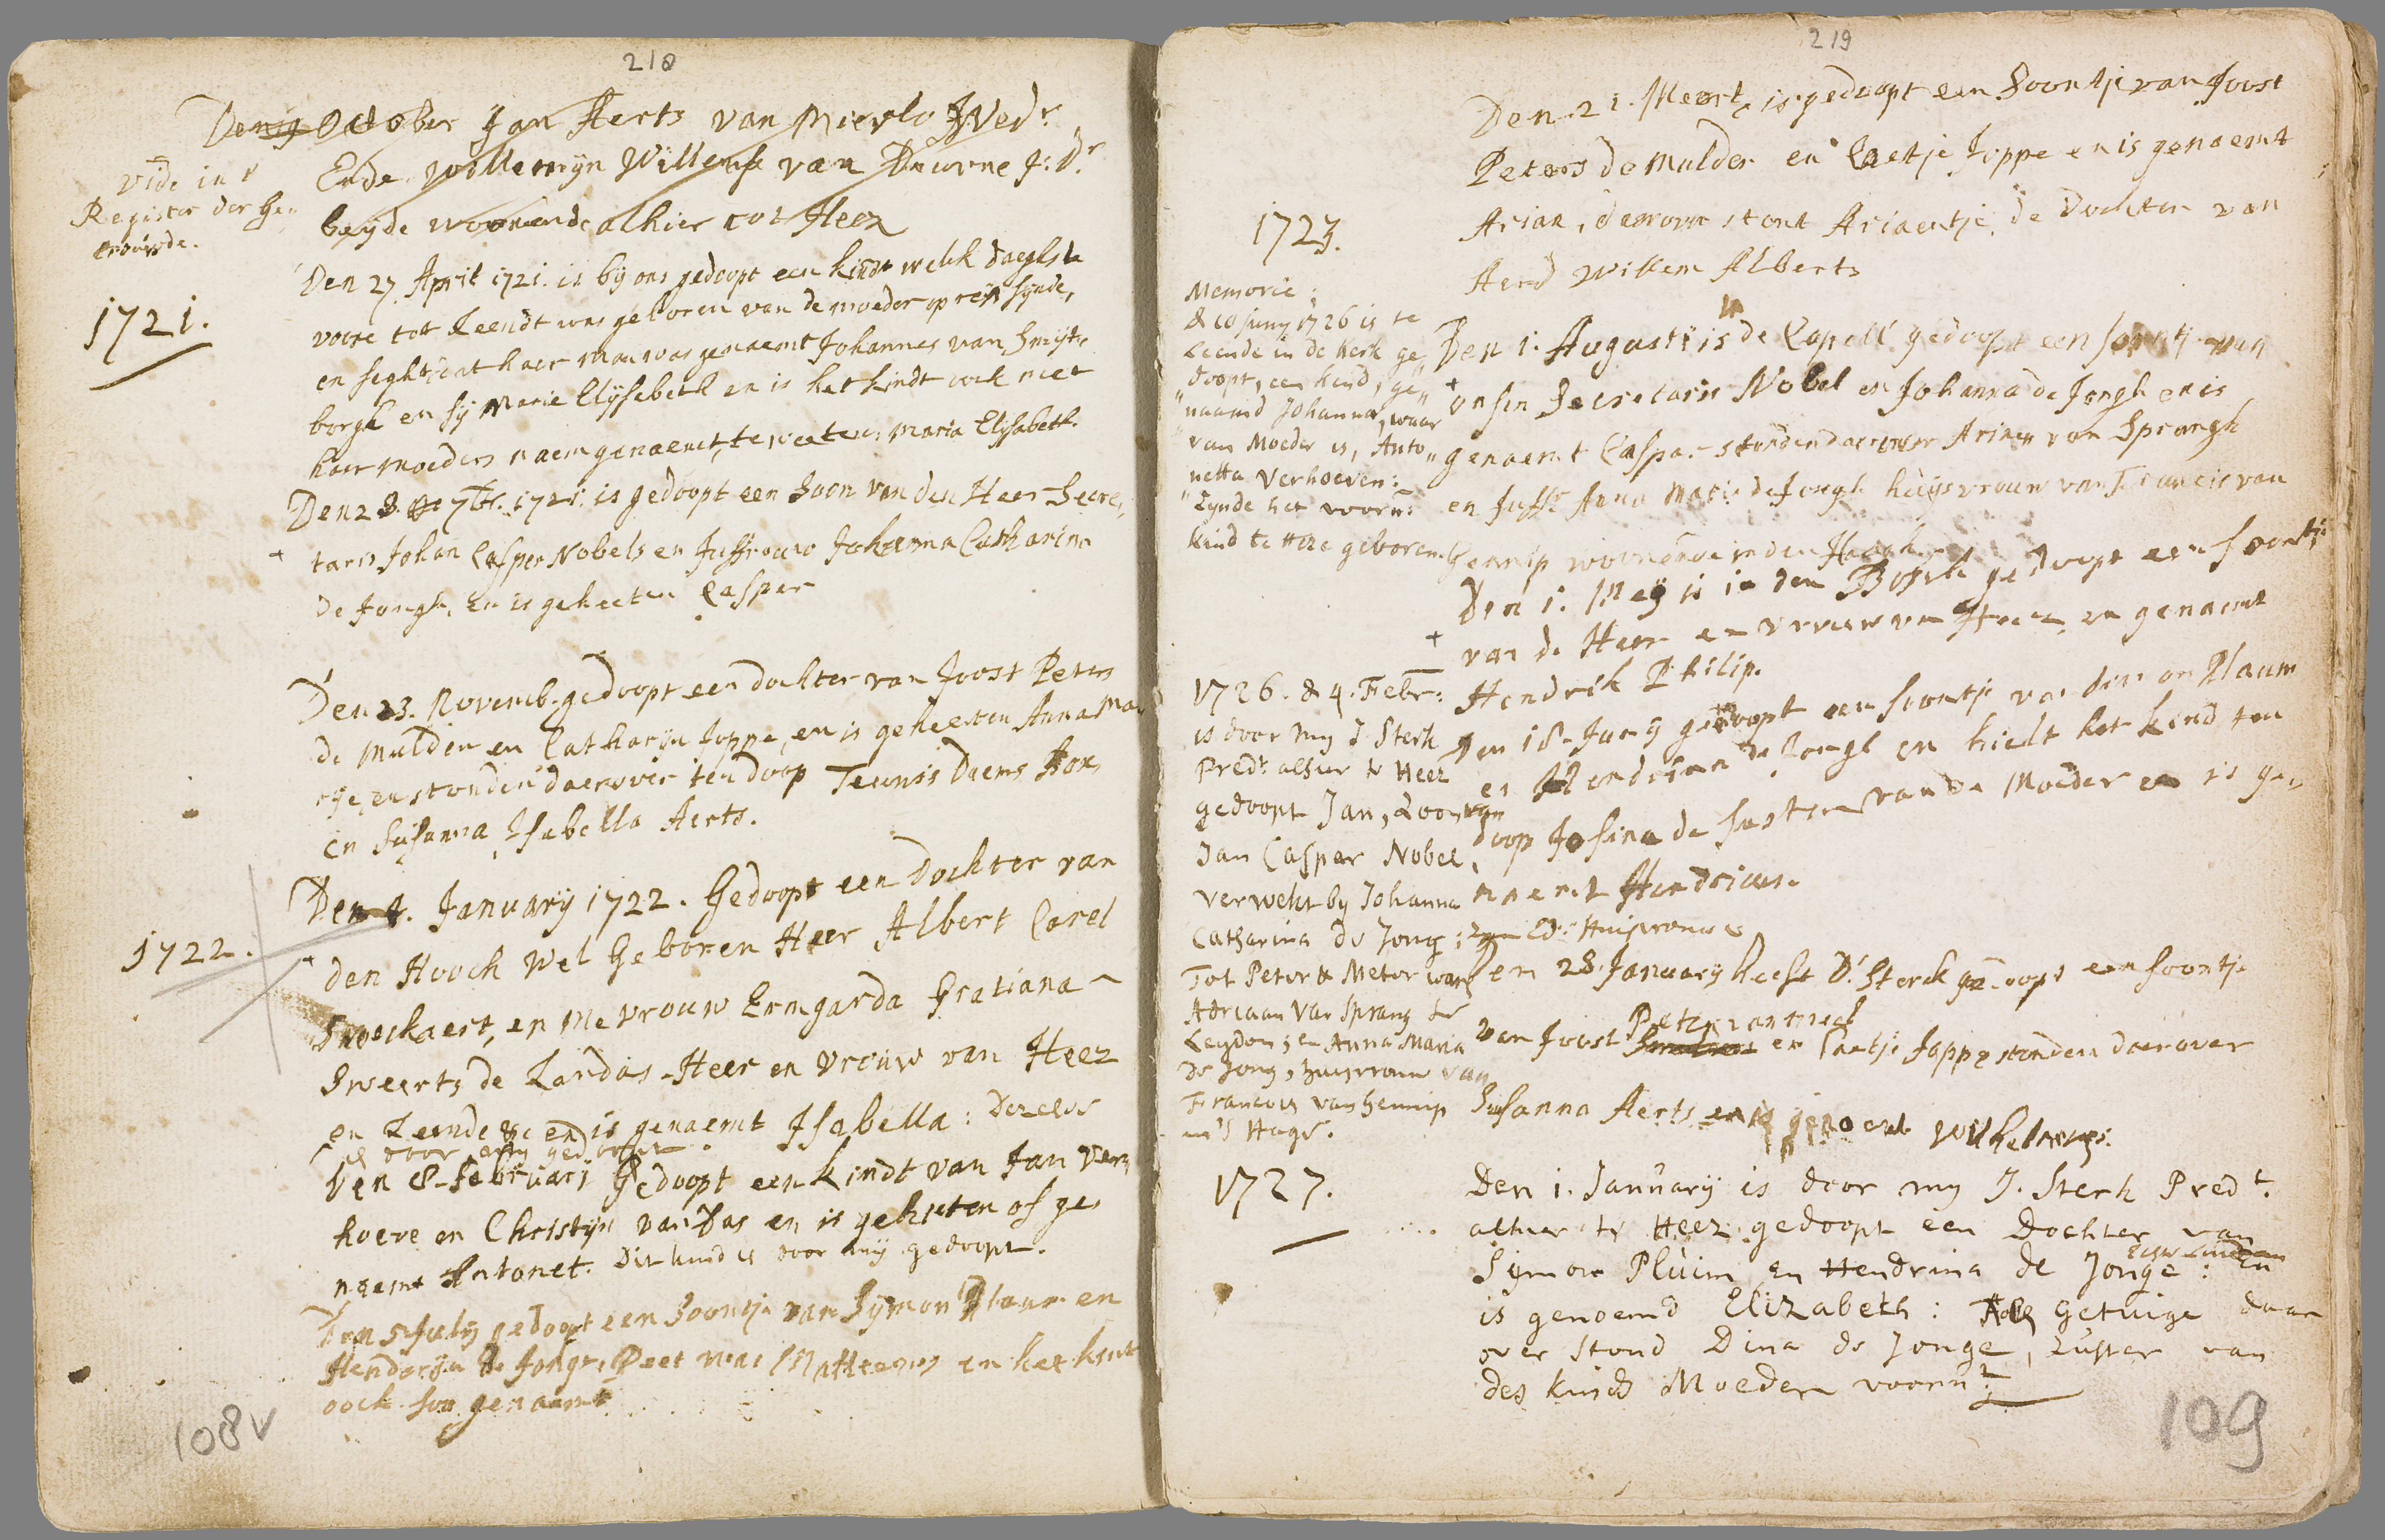 218
October Jan Aerts van Mierlo J: Wedr.
Ende Willemijn Willems van Deurne J: Dr
beyde woonende alhier tot Heez
vide in 't
Register der Ge„
trouwde.
1721.
Den 27 April 1721. is bij ons gedoopt een kindt welck daeghs te
voore tot Leendt was geboren van de moeder op reijs sijnde,
en seght dat haer man was genaemt Johannes van Smijts
borgh en sij Marie Elijsabeth en is het kindt ook met
haer moeders naem genaemt, te weeten, Maria Elysabeth.
Den 28. 7br. 1721. is gedoopt een Soon van den Heer Secre„
+ taris Johan Casper Nobels en Juffrouw Johanna Catharina
de Jongh. En is geheeten Casper
Den 23. Novemb. gedoopt een dochter van Joost Peters
de Mulder en Catharijn Joppe, en is geheeten Anna Ma„
rije, en stonden daerover ten doop Teunis Daems
en Susanna Isabella Aerts.
1722.
Den 4. January 1722. Gedoopt een Dochter van
+ den Hooch Wel Geboren Heer Albert Carel
Snoeckaert, en Mevrouw Ermgarda Gratiana
Sweerts de Landas - Heer en Vrouw van Heez
en Leende &c en is genaemt Isabella: Dezelve
is door my gedoopt
Den 8 February Gedoopt een kindt van Jan Ver„
hoeve en Christijn van Das en is geheeten of ge„
naemt Antonet. Dit kind is door mij gedoopt.
Den 5 July gedoopt een Soontje van Sijmon Plaum en
Henderijn de Jongh, Peet was Mattheeus en het kint
oock soo genaemt
108v
219
Den 21. Meert is gedoopt een Soontje van Joost
Peters de Mulder en Caetje Joppe en is genaemt
Arian, daerover stont Ariaentje de Dochter van
Aerd Willem Alberts
1723.
Memorie:
d 10 Juny 1726 is te
Leende in de Kerk ge„
doopt, een kind, ge„
naamd Johanna, waar
van Moeder is, Anto„
netta Verhoeven:
Zynde het voorn:
kind te Heze geboren.
in
Den 1. Augusti is de Capell gedoopt een soontje van
+ onsen Secretaris Nobel en Johanna de Jongh en is
genaemt Caspar - stonden daerover Arian van Sprangh
en Juffr Anna Marie de Jongh huijsvrouw van Francois van
Gennip woonende in den Haagh
Den 1. Meij is in den Bosch gedoopt een soontje
+ van de Heer en vrouw van Heez en genaemt
Hendrik Philip.
1726. d 4. Febr:
is door my J. Sterk
Predt. alhier te Heez
gedoopt Jan, Zoon van
Jan Casper Nobel,
verwekt by Johanna
Catharina de Jong; zyn Ed: Huisvrouwe
Tot Peter & Meter waren
Adriaan van Sprang te
Leyden; en Anna Maria
de Jong, huisvrouw van
Francois van Gennip
in 's Hage.
Den 18 Juny gedoopt een soontje van Simon Plaum
en Hendrina de Jongh en hielt het kind ten
doop Josina de suster van de Moeder en is ge„
naemt Hendricus.
Den 28 January heeft Ds. Sterck gedoopt een soontje
Peters
van Joost en Caetje Joppe stonden daerover
Susanna Aerts en is genoemt Wilhelmus.
1727.
Den 1. January is door my J. Sterk Predt.
alhier te Heez gedoopt een Dochter van
Symon Pluim en Hendrina de Jonge: en
is genoemd Elizabeth: Als Getuige daar
over stond Dina de Jonge, zuster van
des kinds Moeder voornt.
109